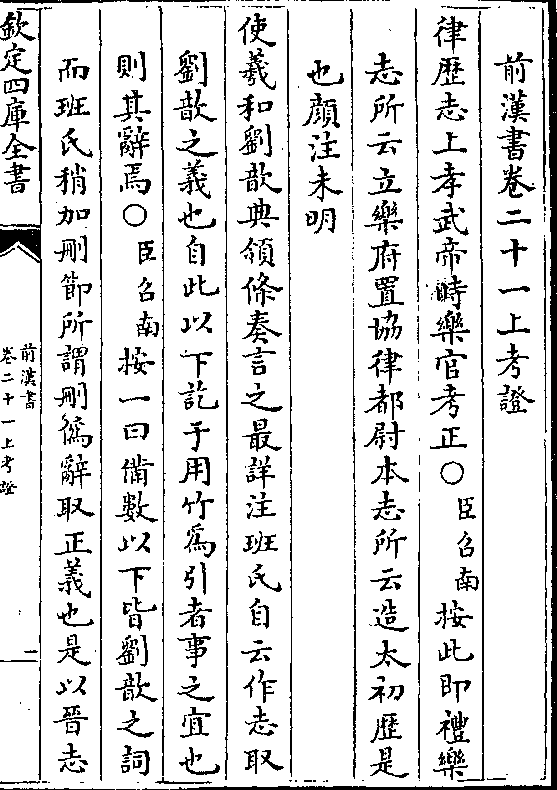 前漢書卷二十一上考證
律歷志上孝武帝時樂官考正○臣召南按此即禮樂
志所云立樂府置協律都尉本志所云造太初歷是
也顔注未明
使羲和劉歆典領條奏言之最詳注班氏自云作志取
劉歆之義也自此以下訖于用竹爲引者事之宜也
則其辭焉○臣召南按一曰備數以下皆劉歆之詞
而班氏稍加刪節所謂刪僞辭取正義也是以晉志
欽定四庫全書
前漢書
卷二十一上考證
一